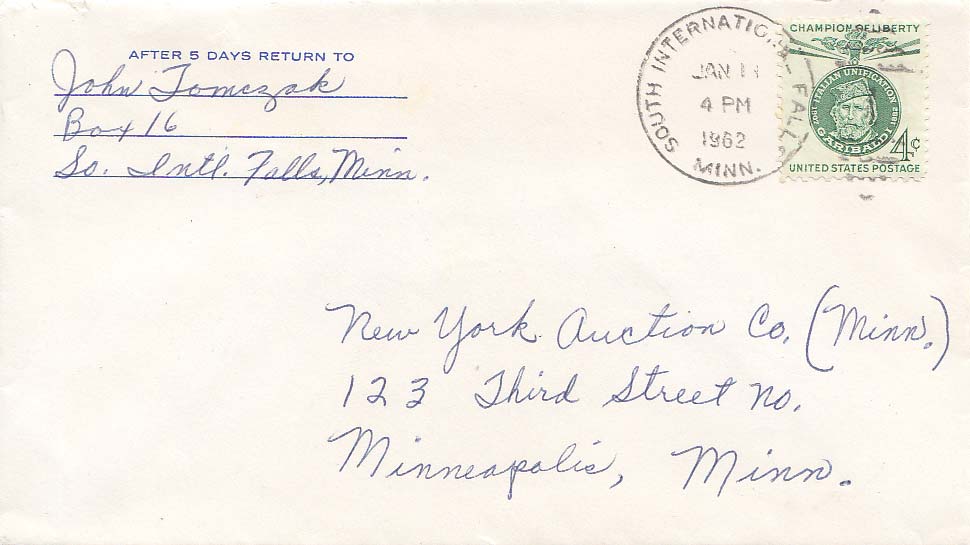 AFTER 5 DAYS RETURN TO
John Tomczak
Box 16
So. Intl. Falls, Minn.
SOUTH INTERNATIONAL FALLS
JAN 11
4 PM
1962
MINN.
CHAMPION OF LIBERTY
ITALIAN UNIFICATION
GARIBALDI
4¢
UNITED STATES POSTAGE
New York Auction Co. (Minn.)
123 Third Street No.
Minneapolis, Minn.